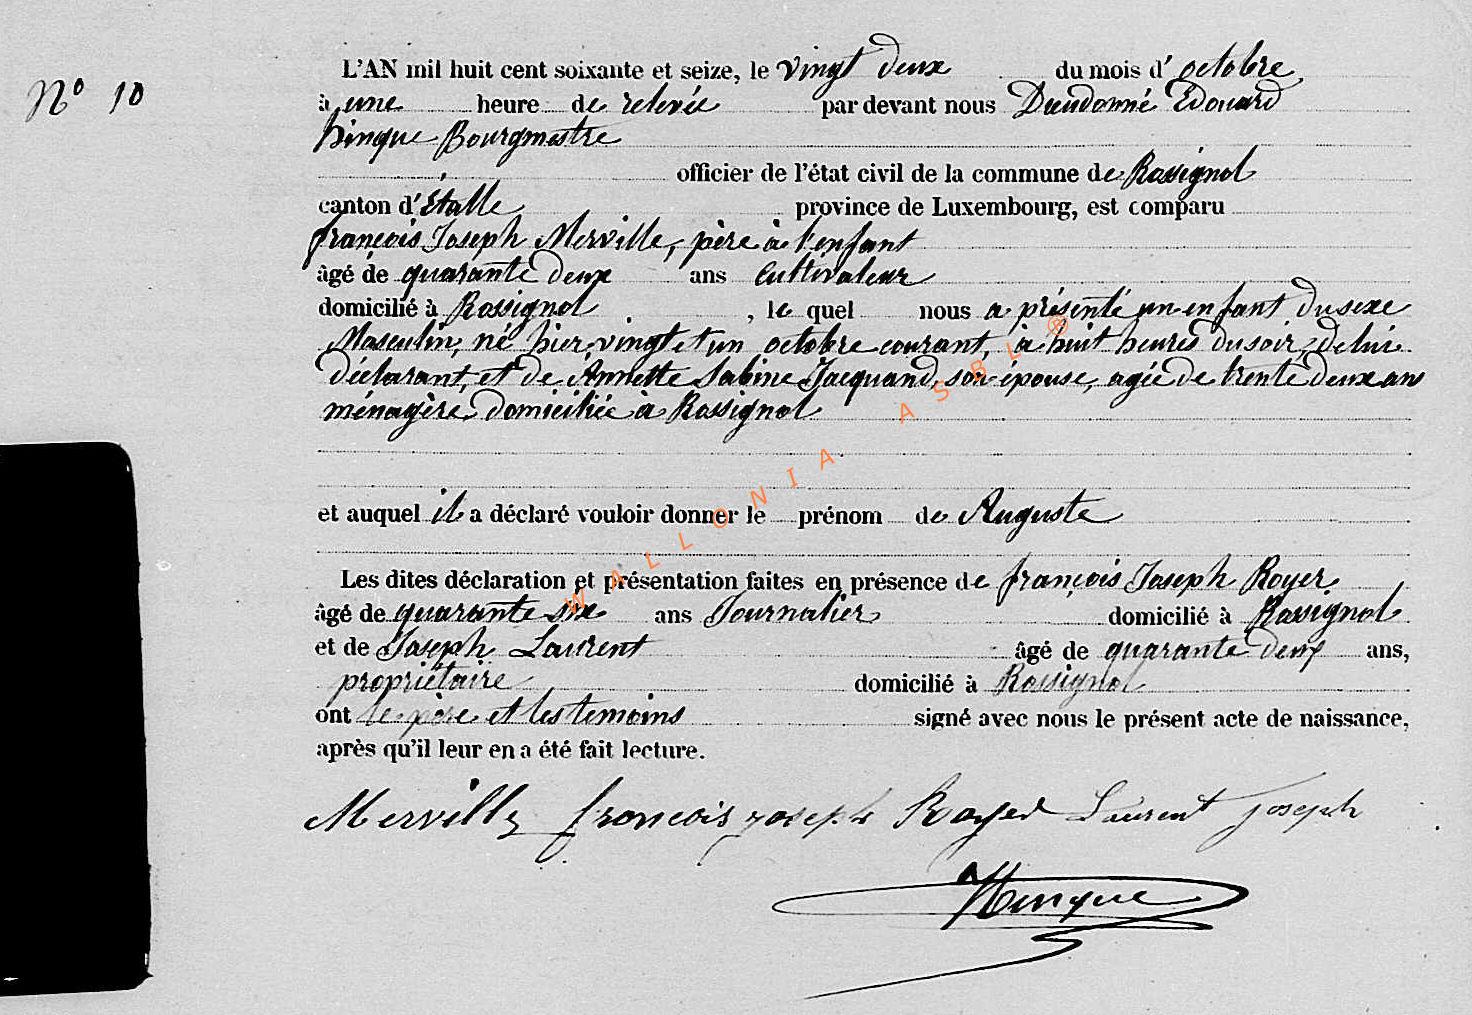 N° 10
L'AN mil huit cent soixante et seize, le vingt deux du mois d' octobre,
à une heure de relevée par devant nous Dieudonné Edouard
hinque Bourgmestre
officier de l'état civil de la commune de Rossignol
canton d' Étalle province de Luxembourg, est comparu
françois Joseph Merville, père à l'enfant
âgé de quarante deux ans Cultivateur
domicilié à Rossignol, le quel nous a présenté un enfant du sexe
Masculin, né hier, vingt et un octobre courant, à huit heures du soir, de lui
déclarant, et de Annette Sabine Jacquand, son épouse, agée de trente deux ans
ménagère, domiciliée à Rossignol
et auquel il a déclaré vouloir donner le prénom de Auguste
Les dites déclaration et présentation faites en présence de françois Joseph Royer,
âgé de quarante six ans Journalier domicilié à Rossignol
et de Joseph Laurent âgé de quarante deux ans,
propriétaire domicilié à Rossignol
ont le père et les temoins signé avec nous le présent acte de naissance,
après qu'il leur en a été fait lecture.
Merville françois joseph Royer Laurent Joseph
Hinque
WALLONIA ASBL ®